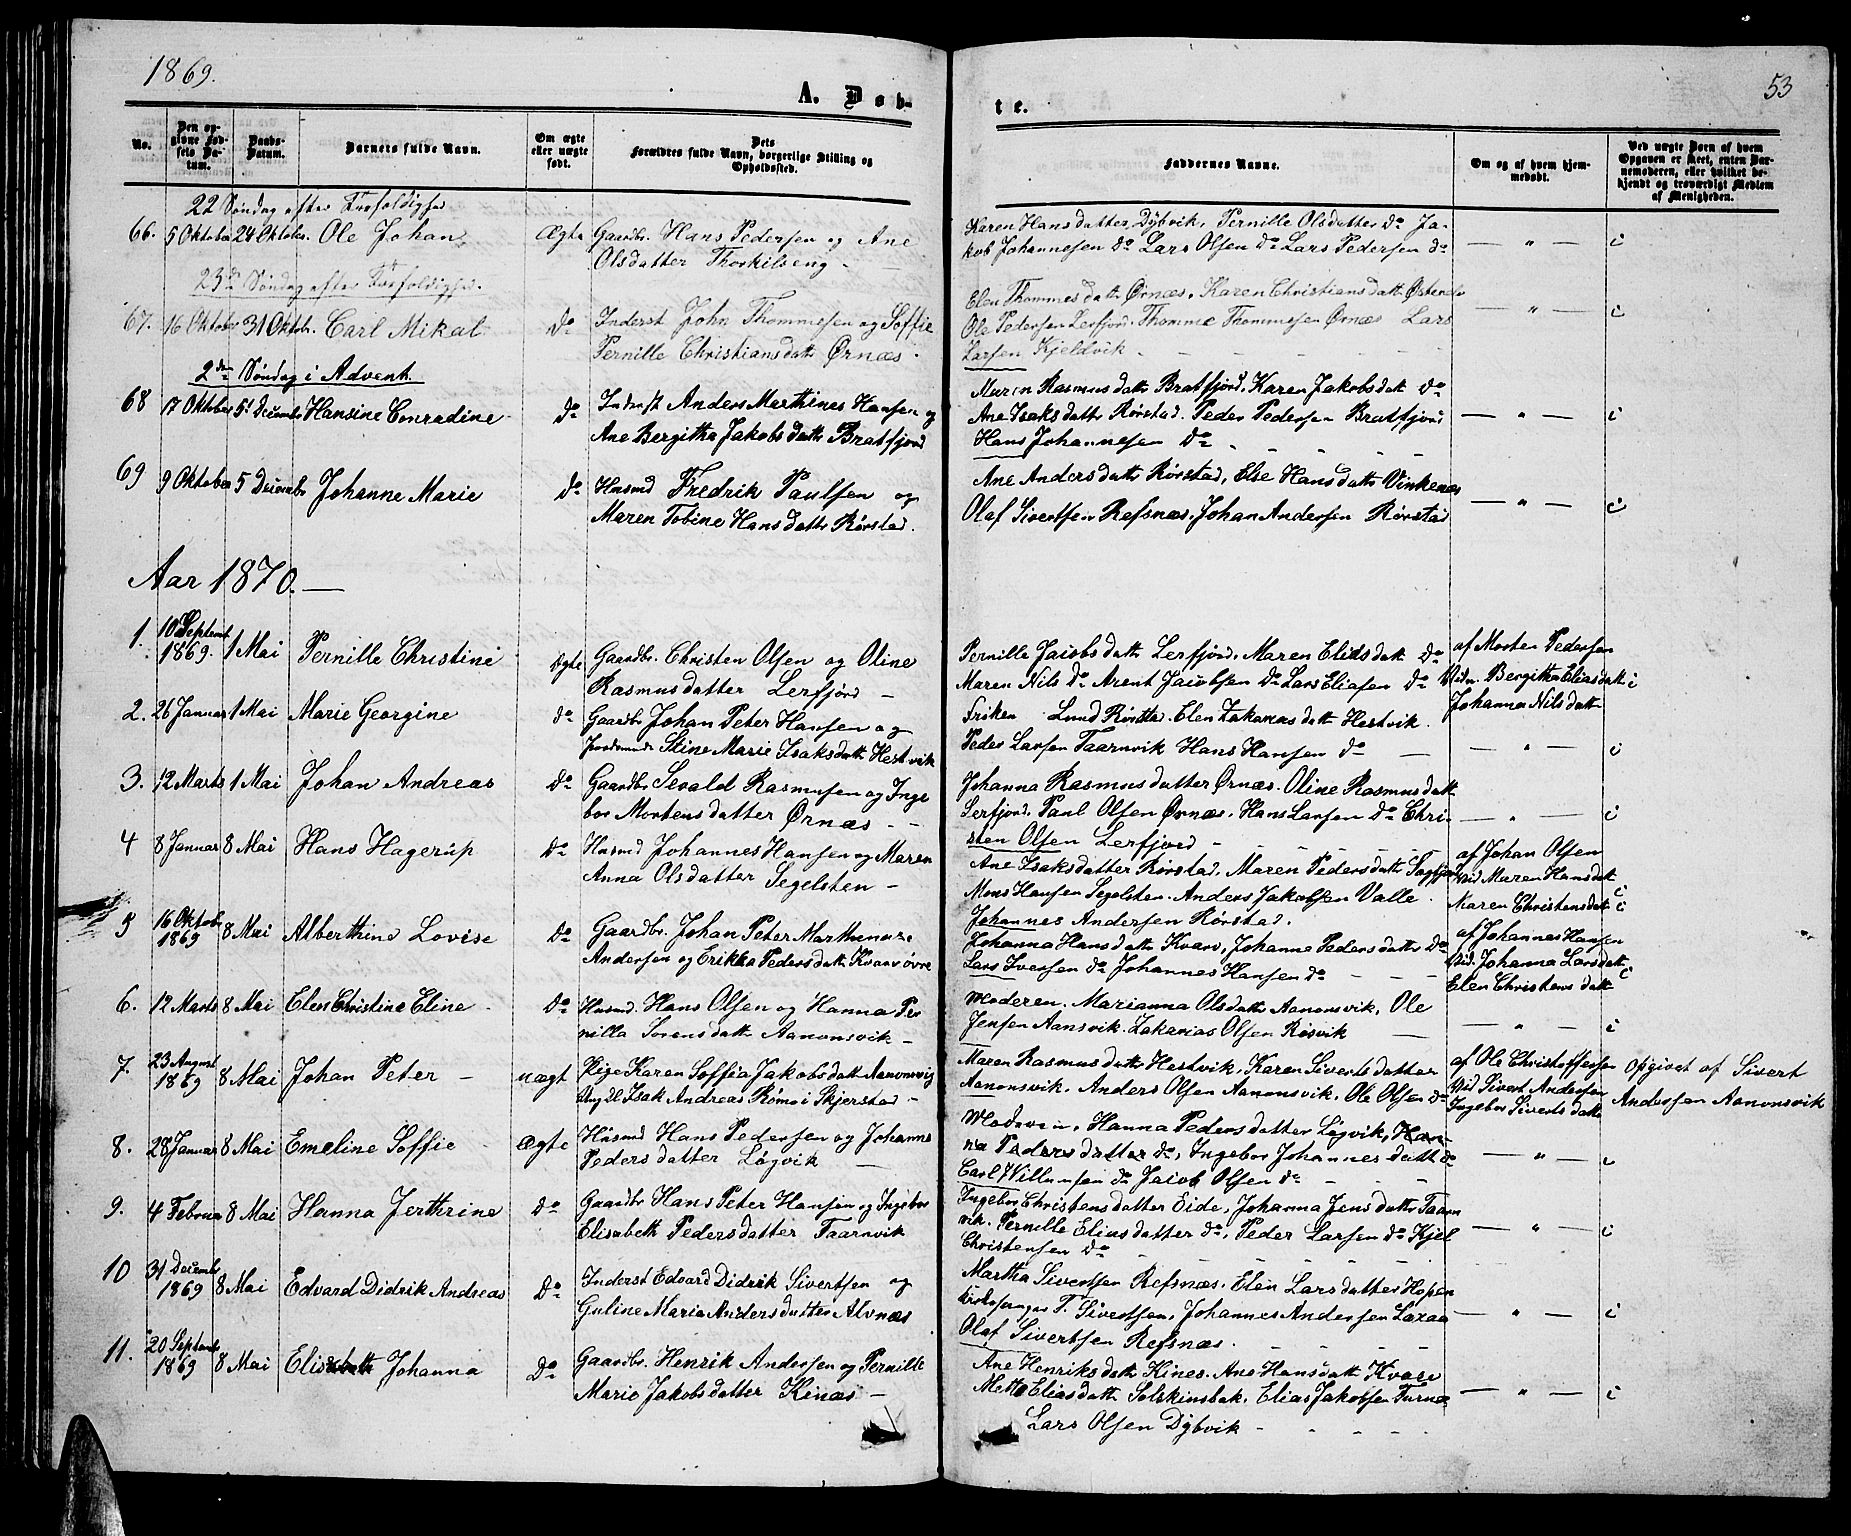 1869.
53
A. Døb-
te.
No.
Den opgivne Fødsels Datum.
Daabs-Datum.
Barnets fulde Navn.
Om ægte eller uægte født.
Dets Forældres fulde Navn, borgerlige Stilling og Opholdssted.
Faddernes Navne.
Om og af hvem hjemmedøbt.
Ved uægte Børn af hvem Opgaven er skeet, enten Barnemoderen, eller hvilket bekjendt og troværdigt Medlem af Menigheden.
22 Søndag efter Trefoldighed
66. 5 Oktober 24 Oktober. Ole Johan Ægte Gaardbr. Hans Pedersen og Ane
Olsdatter Thorkilseng -
Karen Hansdatter Dybvik, Pernille Olsdatter Do Ja-
kob Johannesen Do Lars Olsen Do Lars Pedersen Do
— " — i
23de Søndag efter Trefoldighed.
67. 16 Oktober 31 Oktobr. Carl Mikal Do Inderst John Thommesen og Soffie
Pernille Christiansdatt Ørnæs.
Elen Thommesdatt Ørnæs, Karen Christiansdatt
Ole Pedersen Lerfjord. Thomme Thommesen Ørnæs Lars
Larsen Kjeldvik - - - -
— " — i
2den Søndag i Advent.
68 17 Oktober 5 Decembr Hansine Conradine Do Inderst Anders Marthines Hansen og
Ane Bergitha Jakobsdatt Bratfjord
Maren Rasmusdatt Bratfjord, Karen Jakobsdatt Do
Ane Isaksdatt Rørstad. Peder Pedersen Bratfjord
Hans Johannesen Do - - - -
— " — i
69 9 Oktober 5 Decembr Johanne Marie Do Husmd Fredrik Paulsen og
Maren Tobine Hansdatt Rørstad.
Ane Andersdatt Rørstad, Else Hansdatt Vinkenæs
Olaf Sivertsen Refsnæs, Johan Andersen Rørstad
— " — i
Aar 1870. —
1. 10 Septemb 1869. 1 Mai Pernille Christine Ægte Gaardbr. Christen Olsen og Oline
Rasmusdatter Lerfjord -
Pernille Jacobsdatt Lerfjord, Maren Eliasdatt Do
Maren Nils Do Arent Jacobsen Do Lars Eliasen Do
af Morten Pedersen
Vidn. Bergitha Eliasdatt i
Johanna Nilsdatt
2. 26 Januar 1 Mai Marie Georgine Do Gaardbr Johan Peter Hansen og
Stine Marie Isaksdatt Hestvik
Frøken Lund Elen Zakariasdatt Hestvik.
Peder Larsen Taarnvik Hans Hansen Do —
— " — i
3. 12 Marts 1 Mai Johan Andreas Do Gaardbr Sevald Rasmusen og Inge
bor Mortensdatter Ørnæs - -
Johanna Rasmusdatter Ørnæs. Oline Rasmusdatt
Lerfjord. Paul Olsen Ørnæs. Hans Larsen Do Chri-
sten Olsen Lerfjord - - - -
— " — i
4 8 Januar 8 Mai Hans Hagerup Do Husmd Johannes Hansen og Maren
Anna Olsdatter Segelsten -
Ane Isaksdatter Rørstad, Maren Pedersdatt Sagfjord
Mons Hansen Segelsten. Anders Jakobsen Valle.
Johannes Andersen Rørstad.
af Johan Olsen
Vid Maren Hansdatt
Karen Christensdatt i
5 16 Oktob 1869 8 Mai Alberthine Lovise Do Gaardbr. Johan Peter
Andersen og Erikka Pedersdatt Kvarv øvre
Johanna Hansdatt Kvarv, Johanne Pedersdatt Do
Lars Iversen Do Johannes Hansen Do - -
af Johannes Hansen
Vid. Johanna Larsdatt i
Elen Christensdatt
6. 12 Marts 8 Mai Elen Christina Eline - Do Husmd. Hans Olsen og Hanna Per
nilla Sørensdatt Aanonsvik -
Moderen. Marianna Olsdatt Aanonsvik, Ole
Jensen Aansvik. Zakarias Olsen Røsvik —
— " — i
7. 23 August 1869 8 Mai Johan Peter - uægt Pige Karen Soffia Jakobsdatt Aanonsvig
Ungkl Isak Andreas Rømo i Skjerstad -
Maren Rasmusdatt Hestvik, Karen Sivertsdatter
Aanonsvik. Anders Olsen Aanonsvik, Ole Olsen Do
af Ole Christoffersen
Vid Sivert Andersen
Ingebor Sivertsdatt
Opgivet af Sivert
Andersen Aanonsvik
8. 28 Januar 8 Mai Emeline Soffie Ægte Husmd Hans Pedersen og Johanna
Pedersdatter Løgvik —
Moderen, Hanna Pedersdatter Løgvik, Han-
na Pedersdatter Do, Ingebor Johannesdatt Do
Carl Villumsen Do Jacob Olsen Do - - -
— " — i
9. 4 Februa 8 Mai Hanna Jerthrine Do Gaardbr Hans Peter Hansen og Ingebor
Elisabeth Pedersdatter Taarnvik
Ingebor Christensdatter Eide, Johanna Jensdatt Taarn
vik. Pernille Eliasdatter Do, Peder Larsen Do Kjel
Christensen Do - - - -
— " — i
10 31 Decemb 1869 8 Mai Edvard Didrik Andreas Do Inderst Edvard Didrik Sivertsen og
Guline Maria Andersdatter Alvnæs
Martha Sivertsen Refsnæs. Elen Larsdatter Hopen
Kirkesanger T. Sivertsen, Johannes Andersen Laxaa
Olaf Sivertsen Refsnæs. - - -
— " — i
11. 20 Septemb 1869 8 Mai Elisabeth Johanna Do Gaardbr. Henrik Andersen og Pernille
Marie Jakobsdatter Kinæs -
Ane Henriksdatt Kines. Ane Hansdatt Kvarv
Mette Eliasdatt Solskinsbak. Elias Jakobsen Furnæ
Lars Olsen Dybvik - - - -
— " — i